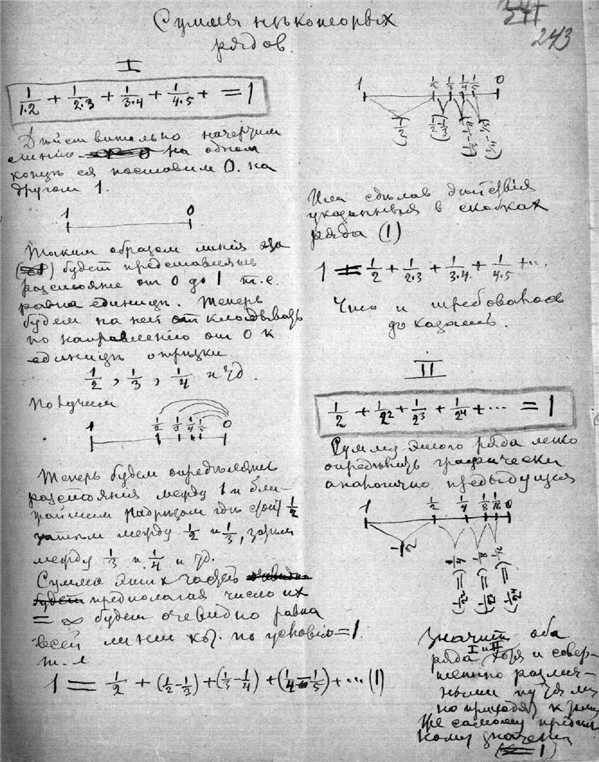 Суммы некоторых
рядов.
243
I
1/1.2 + 1/2.3 + 1/3.4 + 1/4.5 + = 1
Действительно начертим
линію на одном
концѣ ея поставим 0. на
другом 1.
1 0
Таким образом линія
будет представлять
разстояніе от 0 до 1 т.е.
равна единицѣ. Теперь
будем на ней откладывать
по направленію от 0 к
единицѣ отрѣзки
1/2, 1/3, 1/4 и т.д.
Получим
1 1/2 1/3 1/4 1/5 0
Теперь будем опредѣлять
разстоянія между 1 и бли-
жайшим 1/2
затем между 1/2 и 1/3, затем
между 1/3 и 1/4 и т.д.
Сумма этих частей
предполагая число их
= ∞ будет очевидно равна
всей линіи по условію = 1.
т.е
1 = 1/2 + (1/2 - 1/3) + (1/3 - 1/4) + (1/4 - 1/5) + ... (1)
1 1/2 1/3 1/4 1/5 0
(1/2) (1/2 - 1/3) (1/3 - 1/4) (1/4 - 1/5)
Или сдѣлав дѣйствія
указанныя в скобках
ряда (1)
1 = 1/2 + 1/2.3 + 1/3.4 + 1/4.5 + ...
Что и требовалось
доказать.
II
1/2 + 1/2² + 1/2³ + 1/2⁴ + ... = 1
Сумму этого ряда легко
опредѣлить графически
аналогично предыдущей
1 1/2 1/4 1/8 1/16 0
1/2 (1/2²) = (1/4) (1/2³) = (1/8) (1/2⁴) =
Значит оба
ряда I и II хотя и совер-
шенно различ-
ными путями
но приходят к
же самому предѣль-
ному значенію
(= 1)